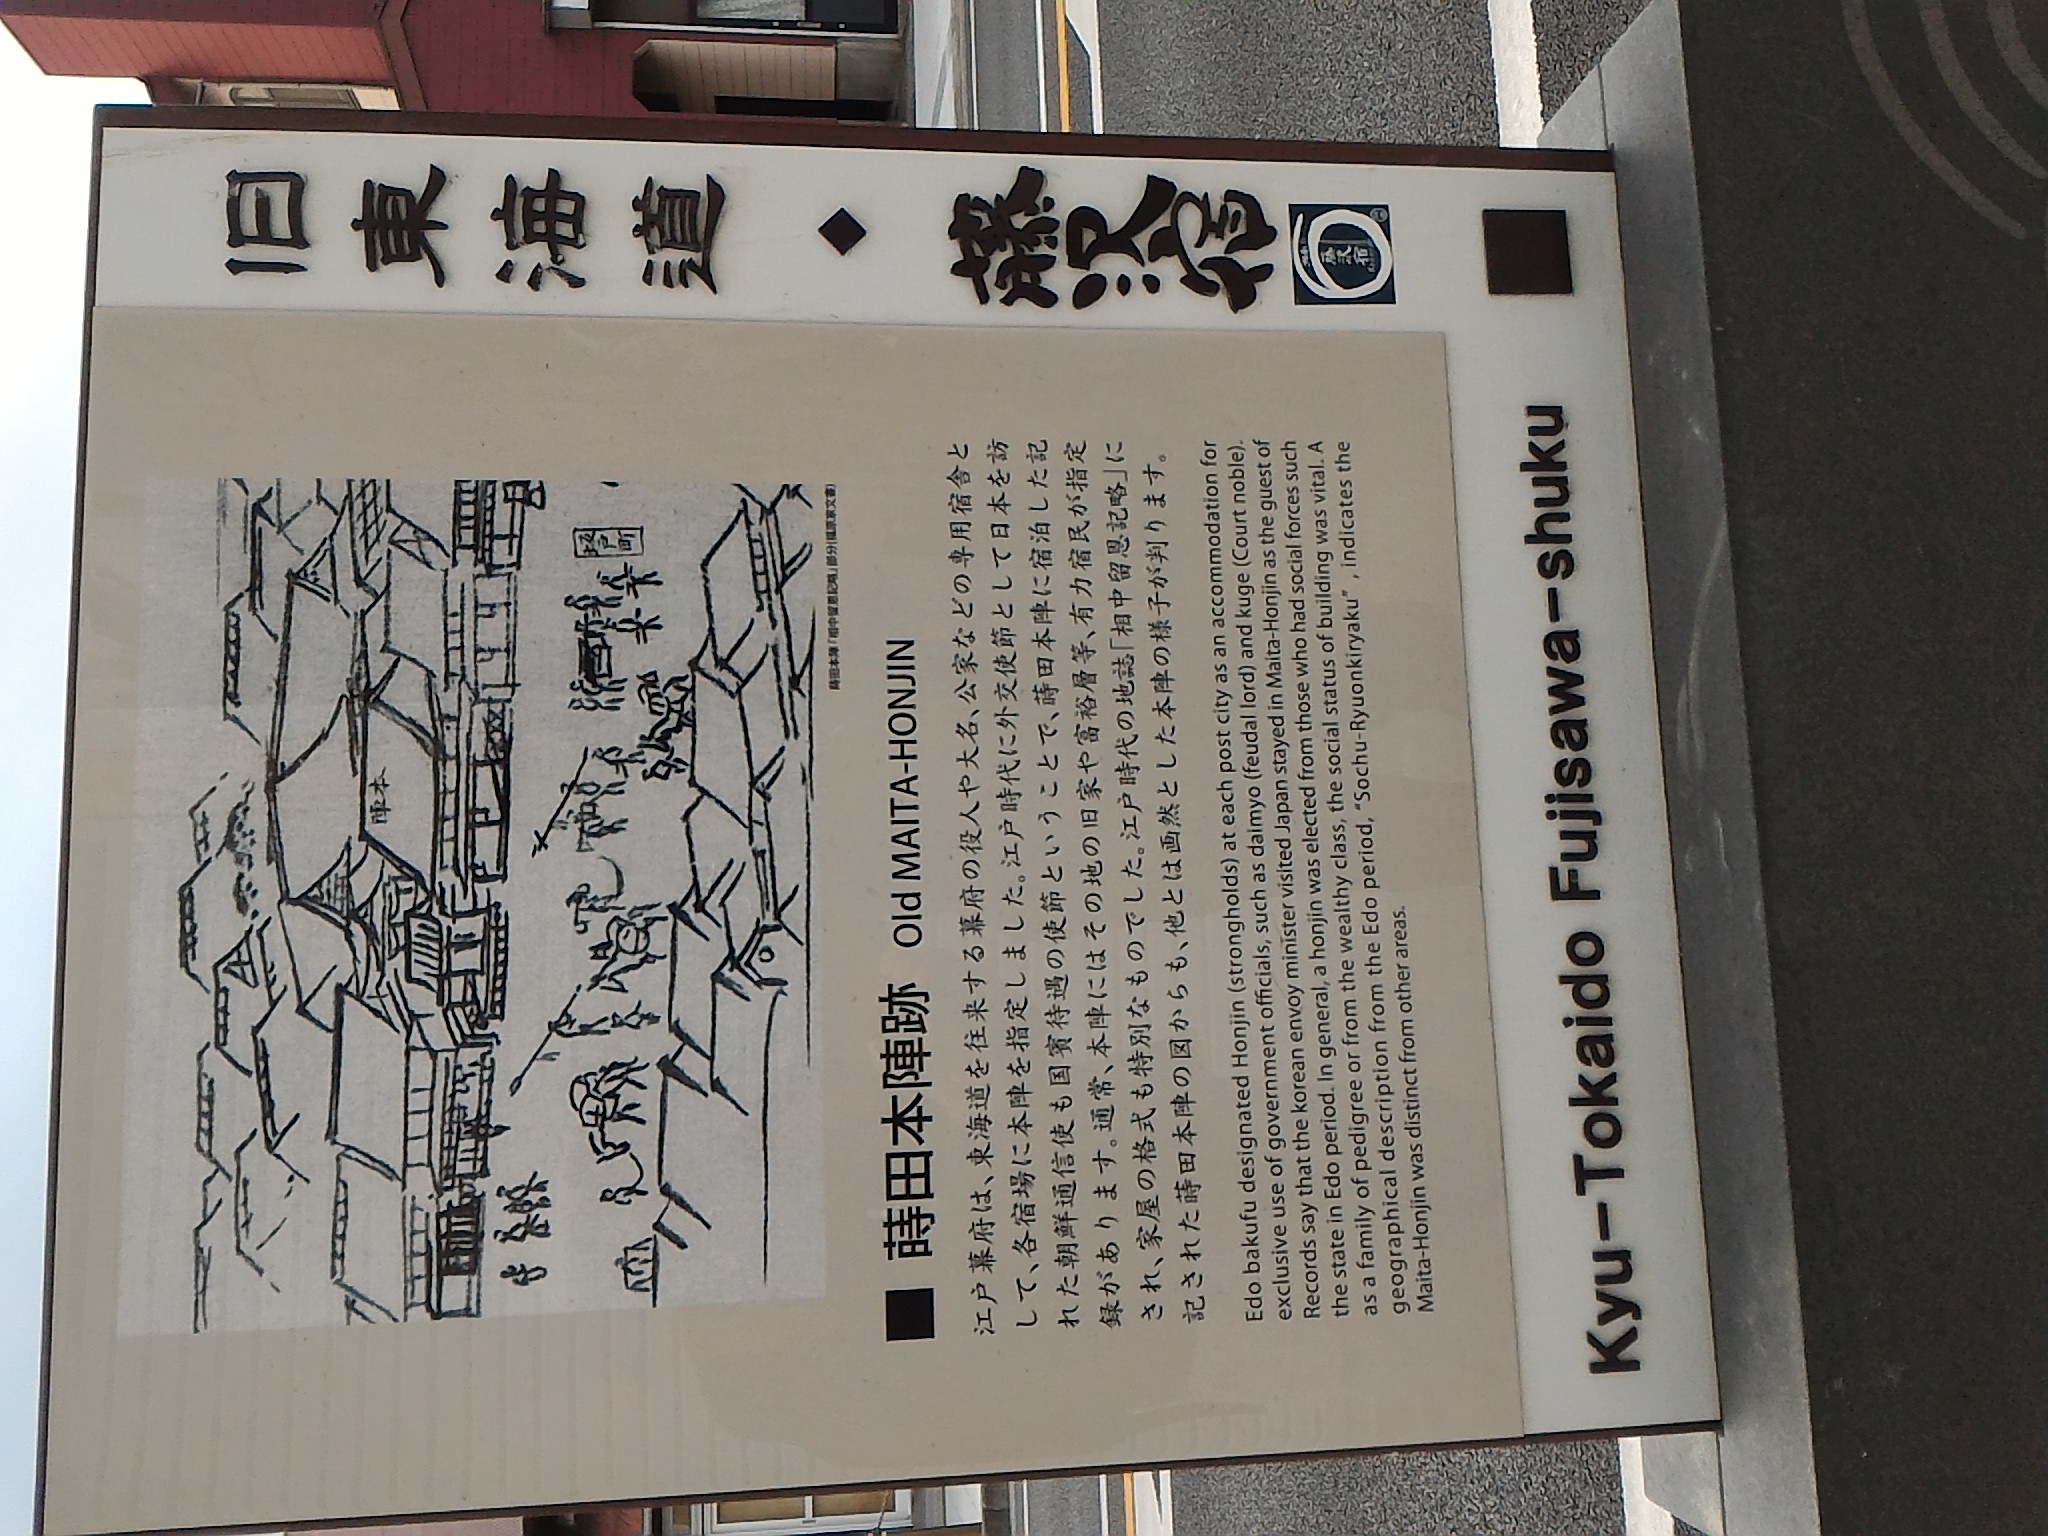 旧東海道◆藤沢宿
藤沢宿
本陣
坂戸町
蒔田本陣「相中留恩記略」部分(福原家文書)
■ 蒔田本陣跡 Old MAITA-HONJIN
江戸幕府は、東海道を往来する幕府の役人や大名、公家などの専用宿舎と
して、各宿場に本陣を指定しました。江戸時代に外交使節として日本を訪
れた朝鮮通信使も国賓待遇の使節ということで、蒔田本陣に宿泊した記
録があります。通常、本陣にはその地の旧家や富裕層等、有力宿民が指定
され、家屋の格式も特別なものでした。江戸時代の地誌「相中留恩記略」に
記された蒔田本陣の図からも、他とは画然とした本陣の様子が判ります。
Edo bakufu designated Honjin (strongholds) at each post city as an accommodation for
exclusive use of government officials, such as daimyo (feudal lord) and kuge (Court noble).
Records say that the korean envoy minister visited Japan stayed in Maita-Honjin as the guest of
the state in Edo period. In general, a honjin was elected from those who had social forces such
as a family of pedigree or from the wealthy class, the social status of building was vital. A
geographical description from the Edo period, "Sochu-Ryuonkiryaku" , indicates the
Maita-Honjin was distinct from other areas.
Kyu-Tokaido Fujisawa-shuku